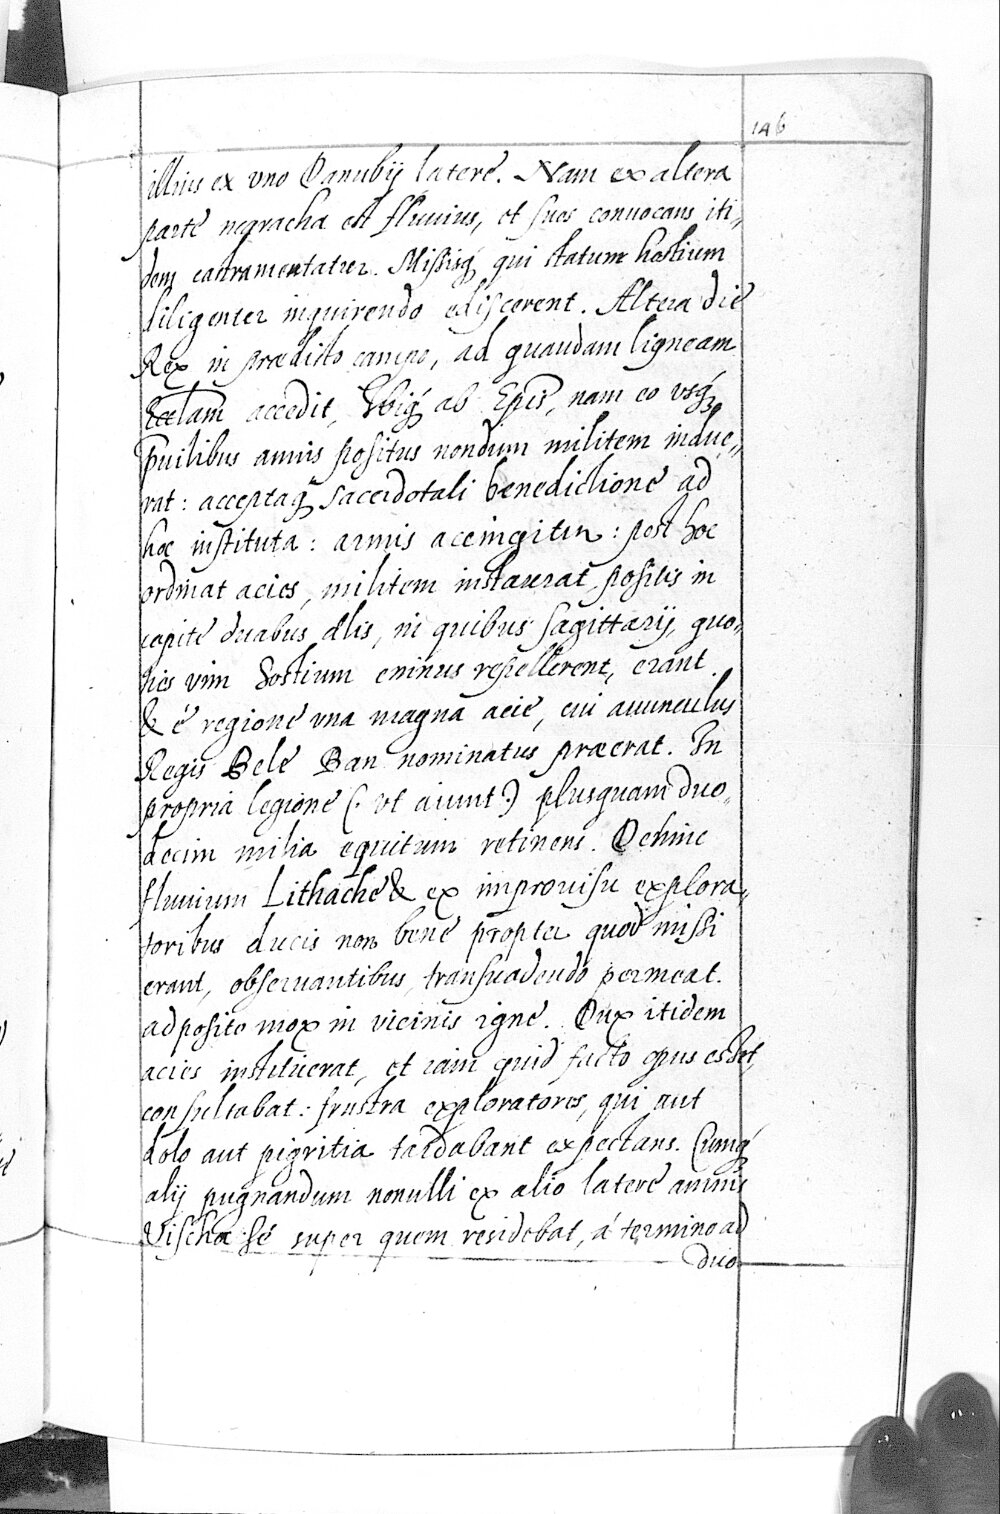 146
illius ex vno Danubij latere. Nam ex altera
parte negracha est fluuius, et suos conuocans iti„
dem castramentatur. Missisq́ qui statum hostium
diligenter inquirendo ediscerent. Altera die
Rex in prædicto campo, ad quandam ligneam
Ecclam accedit, Ibiq́ ab Epis, nam eo vsq́
puilibus armis positus nondum militem indue„
rat: acceptaq́ sacerdotali benedictione ad
hoc instituta: armis accingitur: post hoc
ordinat acies, militem instaurat positis in
capite duabus alis, in quibus sagittarij, quo„
ties vim hostium eminus repellerent, erant.
& é regione vna magna acie, cui auunculus
Regis Bele Ban nominatus præerat. In
propria legione (: vt aiunt :) plusquam duo„
decim milia equitum retinens. Dehinc
fluuium Lithache & ex improuisu explora„
toribus ducis non bene propter quod missi
erant, obseruantibus, transuadendo permeat.
adposito mox in vicinis igne. Dux itidem
acies instituerat, et iam quid facto opus esset,
consultabat: frustra exploratores, qui aut
dolo aut pigritia tardabant expectans. Cumq́
alij pugnandum nonulli ex alio latere amnis
Vischa sé super quem residebat, á termino ad
duo